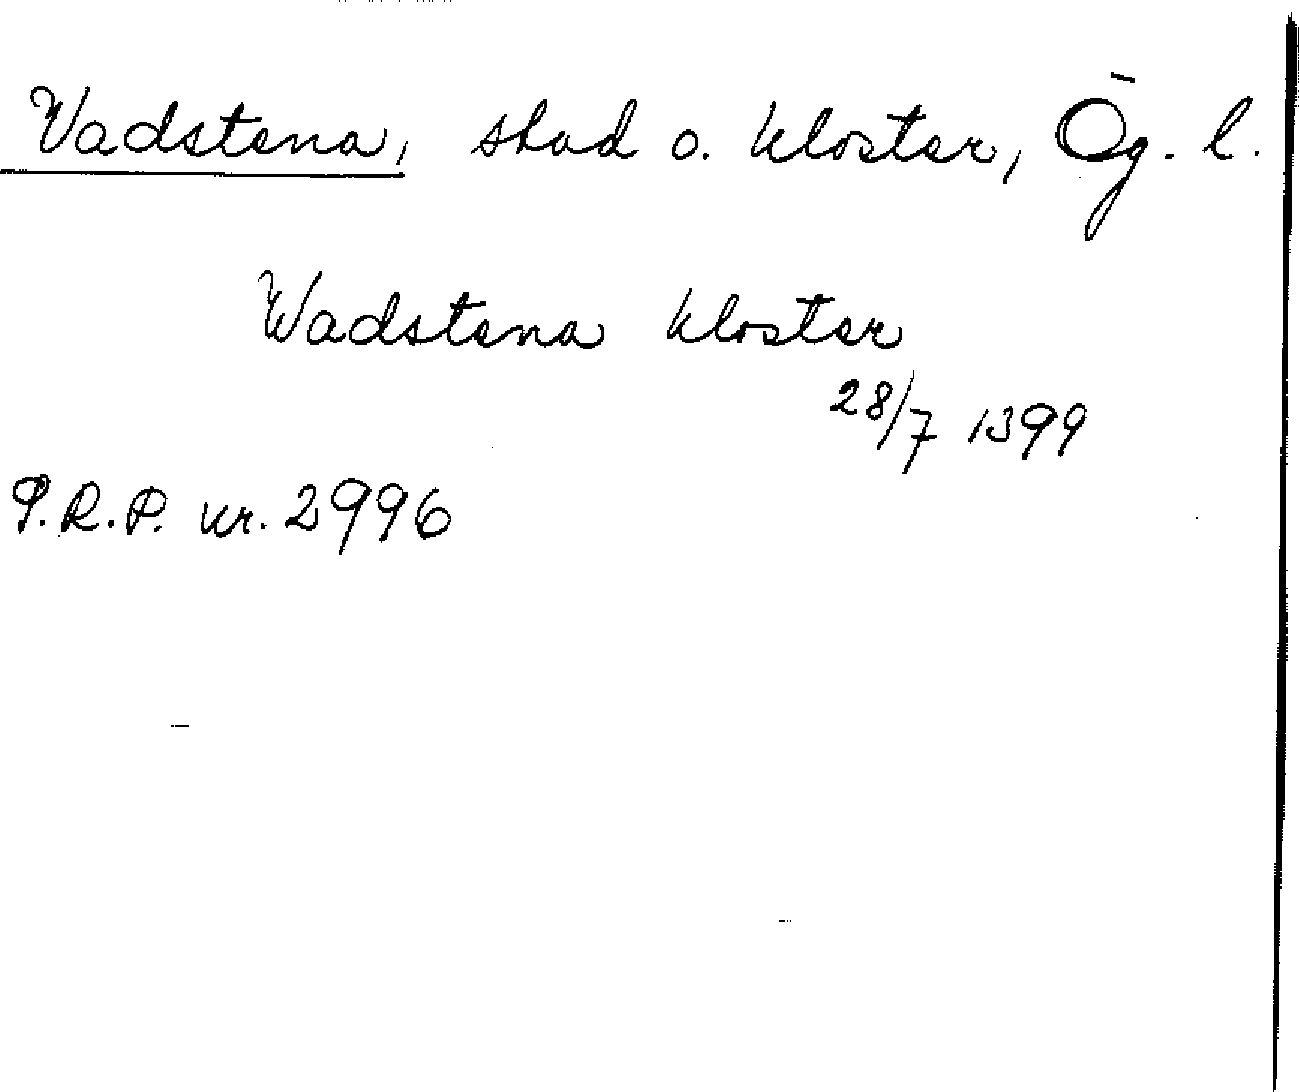 Vadstena, stad o. kloster, Ög. l.
Wadstena kloster
28/7 1399
P.R.P. nr. 2996